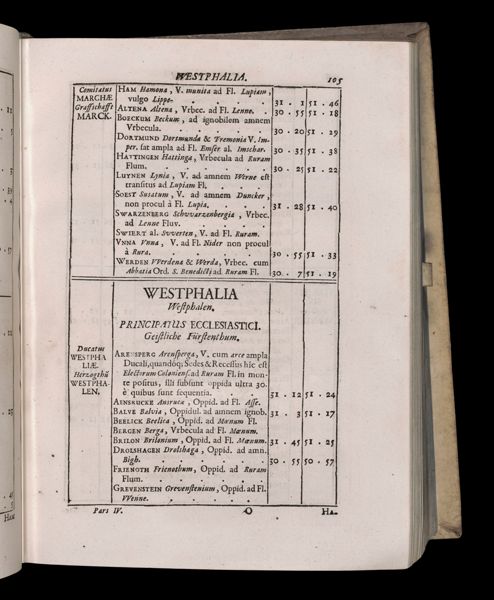 WESTPHALIA. 105
Comitatus
MARCHÆ
Graffschafft
MARCK.
HAM Hamona, V. munita ad Fl. Lupiam,
vulgo Lippe. 31 . 1 51 . 46
ALTENA Altena, Vrbec. ad Fl. Lenne. 30 . 55 51 . 18
BOECKUM Beckum, ad ignobilem amnem
Vrbecula. 30 . 20 51 . 29
DORTMUND Dortmunda & Tremonia V. Im-
per. sat ampla ad Fl. Emser al. Imschar. 30 . 35 51 . 38
HATTINGEN Hattinga, Vrbecula ad Ruram
Flum. 30 . 25 51 . 22
LUYNEN Lynia, V. ad amnem Werne est
transitus ad Lupiam Fl.
SOEST Susatum, V. ad amnem Duncker,
non procul à Fl. Lupia. 31 . 28 51 . 40
SWARZENBERG Schvvarzenbergia, Vrbec.
ad Lenne Fluv.
SWIERT al. Svverten, V. ad Fl. Ruram.
VNNA Vnna, V. ad Fl. Nider non procul
à Rura. 30 . 55 51 . 33
WERDEN VVerdena & Werda, Vrbec. cum
Abbatia Ord. S. Benedicti ad Ruram Fl. 30 . 7 51 . 19
WESTPHALIA
Westphalen.
PRINCIPATUS ECCLESIASTICI.
Geistliche Fürstenthum.
Ducatus
WESTPHA-
LIÆ.
Herzogthū
WESTPHA-
LEN.
ARENSPERG Arensperga, V. cum arce ampla
Ducali, quandoq; Sedes & Recessus hic est
Electorum Coloniens. ad Ruram Fl. in mon-
te positus, illi subsunt oppida ultra 30.
è quibus sunt sequentia. 31 . 12 51 . 24
AINSRUCKE Ansruca, Oppid. ad Fl. Asse.
BALVE Balvia, Oppidul. ad amnem ignob. 31 . 3 51 . 17
BEELICK Beelica, Oppid. ad Mœnum Fl.
BERGEN Berga, Vrbecula ad Fl. Mœnum.
BRILON Brilonium, Oppid. ad Fl. Mœnum. 31 . 45 51 . 25
DROLSHAGEN Drolshaga, Oppid. ad amn.
Bigh. 30 . 55 50 . 57
FRIENOTH Frienothum, Oppid. ad Ruram
Flum.
GREVENSTEIN Grevensteinium, Oppid. ad Fl.
VVenne.
Pars IV. O HA-